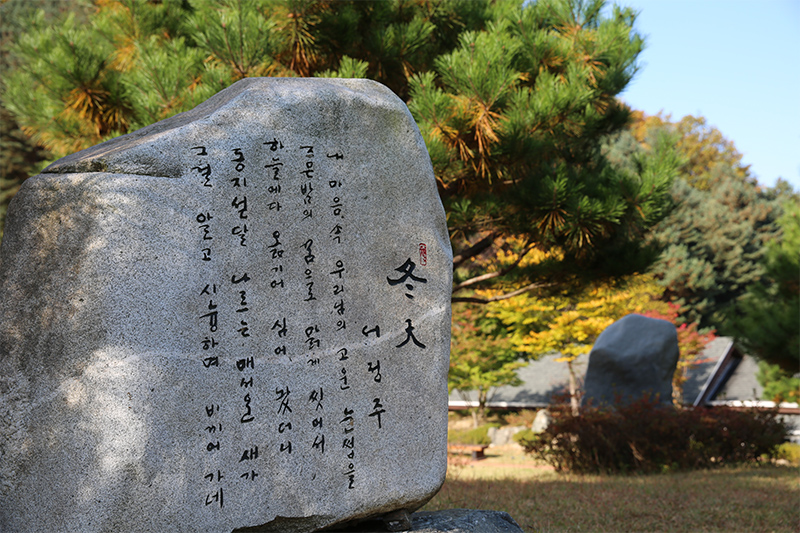 冬天
서정주
내 마음속 우리님의 고운 눈섭을
즈믄밤의 꿈으로 맑게 씻어서,
하늘에다 옮기어 심어 놨더니
동지섣달 나르는 매서운 새가
그걸 알고 시늉하며 비끼어 가네